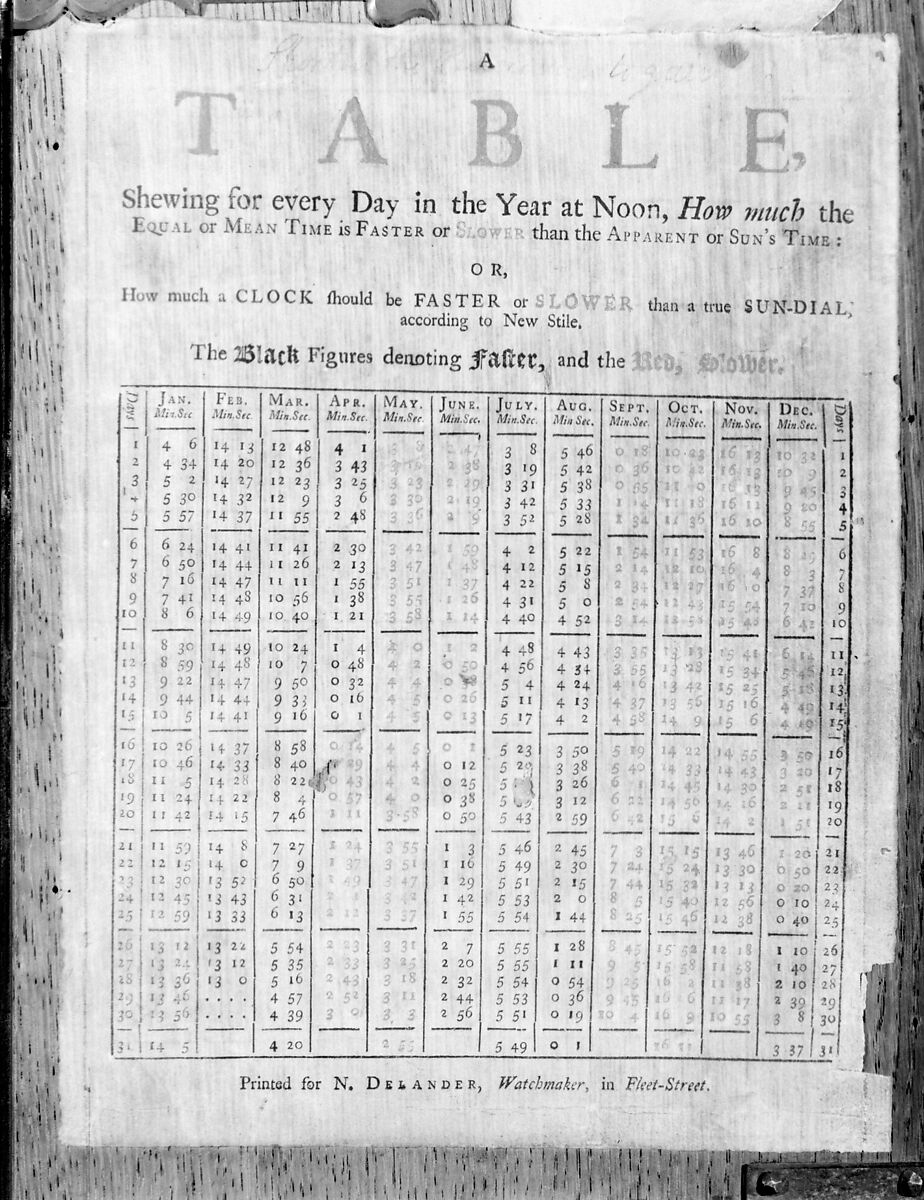 A
TABLE,
Shewing for every Day in the Year at Noon, How much the
EQUAL or MEAN TIME is FASTER or SLOWER than the APPARENT or SUN'S TIME:
OR,
How much a CLOCK ſhould be FASTER or SLOWER than a true SUN-DIAL,
according to New Stile.
The Black Figures denoting Faſter, and the Red, Slower.
Days JAN. FEB. MAR. APR. MAY. JUNE. JULY. AUG. SEPT. OCT. NOV. DEC. Days
Min.Sec Min.Sec. Min.Sec. Min.Sec. Min.Sec. Min.Sec. Min.Sec. Min Sec. Min.Sec. Min.Sec. Min.Sec. Min.Sec.
1 4 6 14 13 12 48 4 1 2 47 3 8 5 46 0 18 10 23 16 13 10 32 1
2 4 34 14 20 12 36 3 43 2 38 3 19 5 42 0 36 10 42 16 13 10 9 2
3 5 2 14 27 12 23 3 25 3 23 2 29 3 31 5 38 0 55 11 0 16 13 9 45 3
4 5 30 14 32 12 9 3 6 3 30 2 19 3 42 5 33 1 14 11 18 16 12 9 20 4
5 5 57 14 37 11 55 2 48 3 36 2 9 3 52 5 28 1 34 11 36 16 10 8 55 5
6 6 24 14 41 11 41 2 30 3 42 1 59 4 2 5 22 1 54 11 53 16 8 8 29 6
7 6 50 14 44 11 26 2 13 3 47 1 48 4 12 5 15 2 14 12 10 16 4 8 3 7
8 7 16 14 47 11 11 1 55 3 51 1 37 4 22 5 8 2 34 12 27 16 0 7 37 8
9 7 41 14 48 10 56 1 38 3 55 1 26 4 31 5 0 2 54 12 43 15 54 7 10 9
10 8 6 14 49 10 40 1 21 3 58 1 14 4 40 4 52 3 14 12 58 15 48 6 42 10
11 8 30 14 49 10 24 1 4 4 0 1 2 4 48 4 43 3 35 13 13 15 41 6 14 11
12 8 59 14 48 10 7 0 48 4 2 0 50 4 56 4 34 3 55 13 28 15 34 5 46 12
13 9 22 14 47 9 50 0 32 4 4 0 5 4 4 24 4 16 13 42 15 25 5 18 13
14 9 44 14 44 9 33 0 16 4 5 0 26 5 11 4 13 4 37 13 56 15 16 4 49 14
15 10 5 14 41 9 16 0 1 4 5 0 13 5 17 4 2 4 58 14 9 15 6 4 15
16 10 26 14 37 8 58 0 14 4 5 0 1 5 23 3 50 5 19 14 22 14 55 3 50 16
17 10 46 14 33 8 40 29 4 4 0 12 5 29 3 38 5 40 14 33 14 43 3 20 17
18 11 5 14 28 8 22 0 43 4 2 0 25 5 3 26 6 1 14 45 14 30 2 51 18
19 11 24 14 22 8 4 0 57 4 0 0 38 5 3 12 6 22 14 56 14 16 2 21 19
20 11 42 14 15 7 46 1 11 3 58 0 50 5 43 2 59 6 42 15 6 14 2 1 51 20
21 11 59 14 8 7 27 1 24 3 55 1 3 5 46 2 45 7 3 15 15 13 46 1 20 21
22 12 15 14 0 7 9 1 37 3 51 1 16 5 49 2 30 7 24 15 24 13 30 0 50 22
23 12 30 13 52 6 50 1 49 3 47 1 29 5 51 2 15 7 44 15 32 13 13 0 20 23
24 12 45 13 43 6 31 2 1 3 42 1 42 5 53 2 0 8 5 15 40 12 56 0 10 24
25 12 59 13 33 6 13 2 12 3 37 1 55 5 54 1 44 8 25 15 46 12 38 0 40 25
26 13 12 13 22 5 54 2 23 3 31 2 7 5 55 1 28 8 45 15 52 12 18 1 10 26
27 13 24 13 12 5 35 2 33 3 25 2 20 5 55 1 11 9 5 15 58 11 58 1 40 27
28 13 36 13 0 5 16 2 43 3 18 2 32 5 54 0 54 9 25 16 2 11 38 2 10 28
29 13 46 .... 4 57 2 52 3 11 2 44 5 53 0 36 9 45 16 6 11 17 2 39 29
30 13 56 .... 4 39 3 0 3 3 2 56 5 51 0 19 10 4 16 9 10 55 3 8 30
31 14 5 4 20 2 55 5 49 0 1 16 11 3 37 31
Printed for N. DELANDER, Watchmaker, in Fleet-Street.